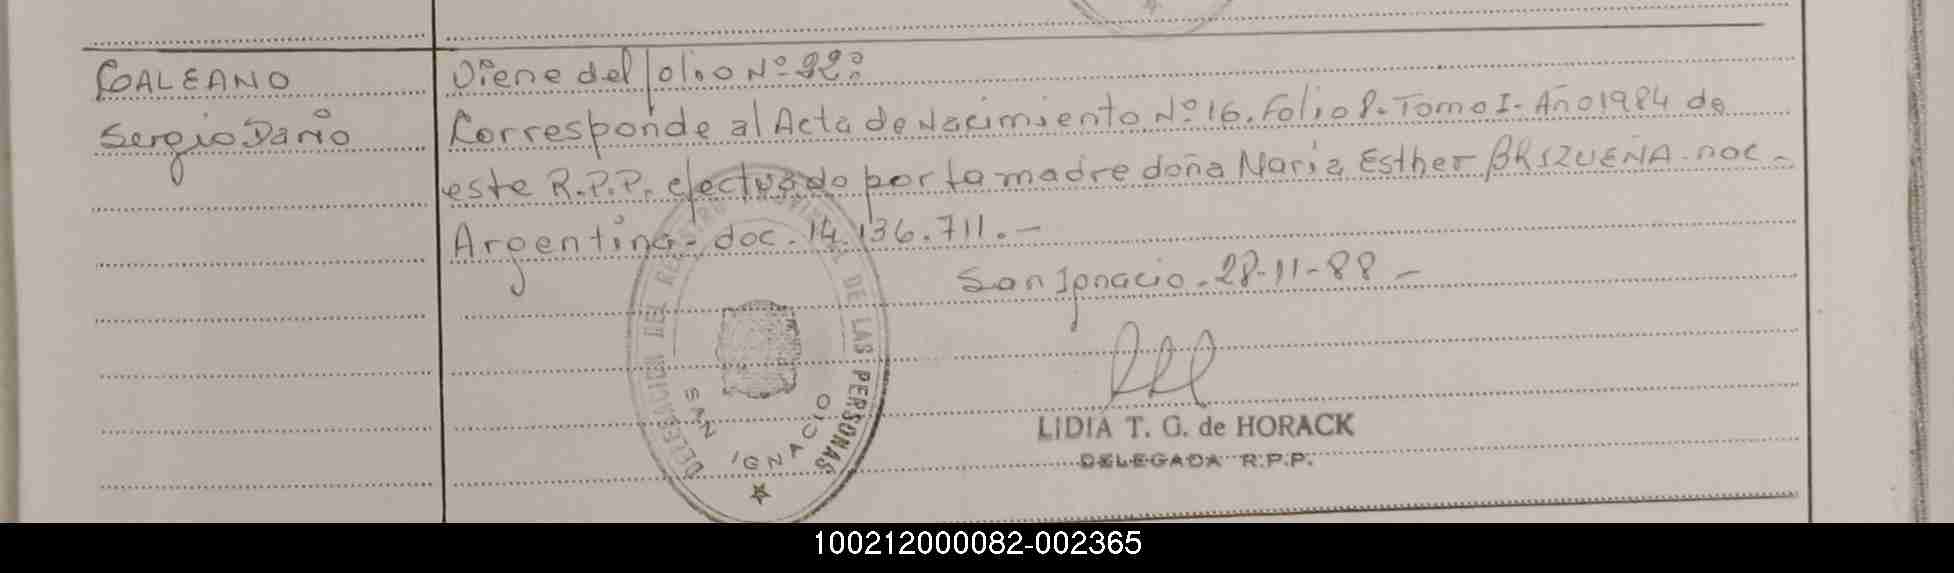 GALEANO
Sergio Dario
Viene del folio Nº 92º
Corresponde al Acta de Nacimiento Nº 16. Folio 8. Tomo I. Año 1984 de
este R.P.P. efectuado por la madre doña Maria Esther BRIZUEÑA. nac-
Argentina. doc. 14.136.711.-
San Ignacio. 28-11-88-
DELEGACION DEL REGISTRO PROVINCIAL DE LAS PERSONAS
SAN IGNACIO
LIDIA T. G. de HORACK
DELEGADA R.P.P.
100212000082-002365